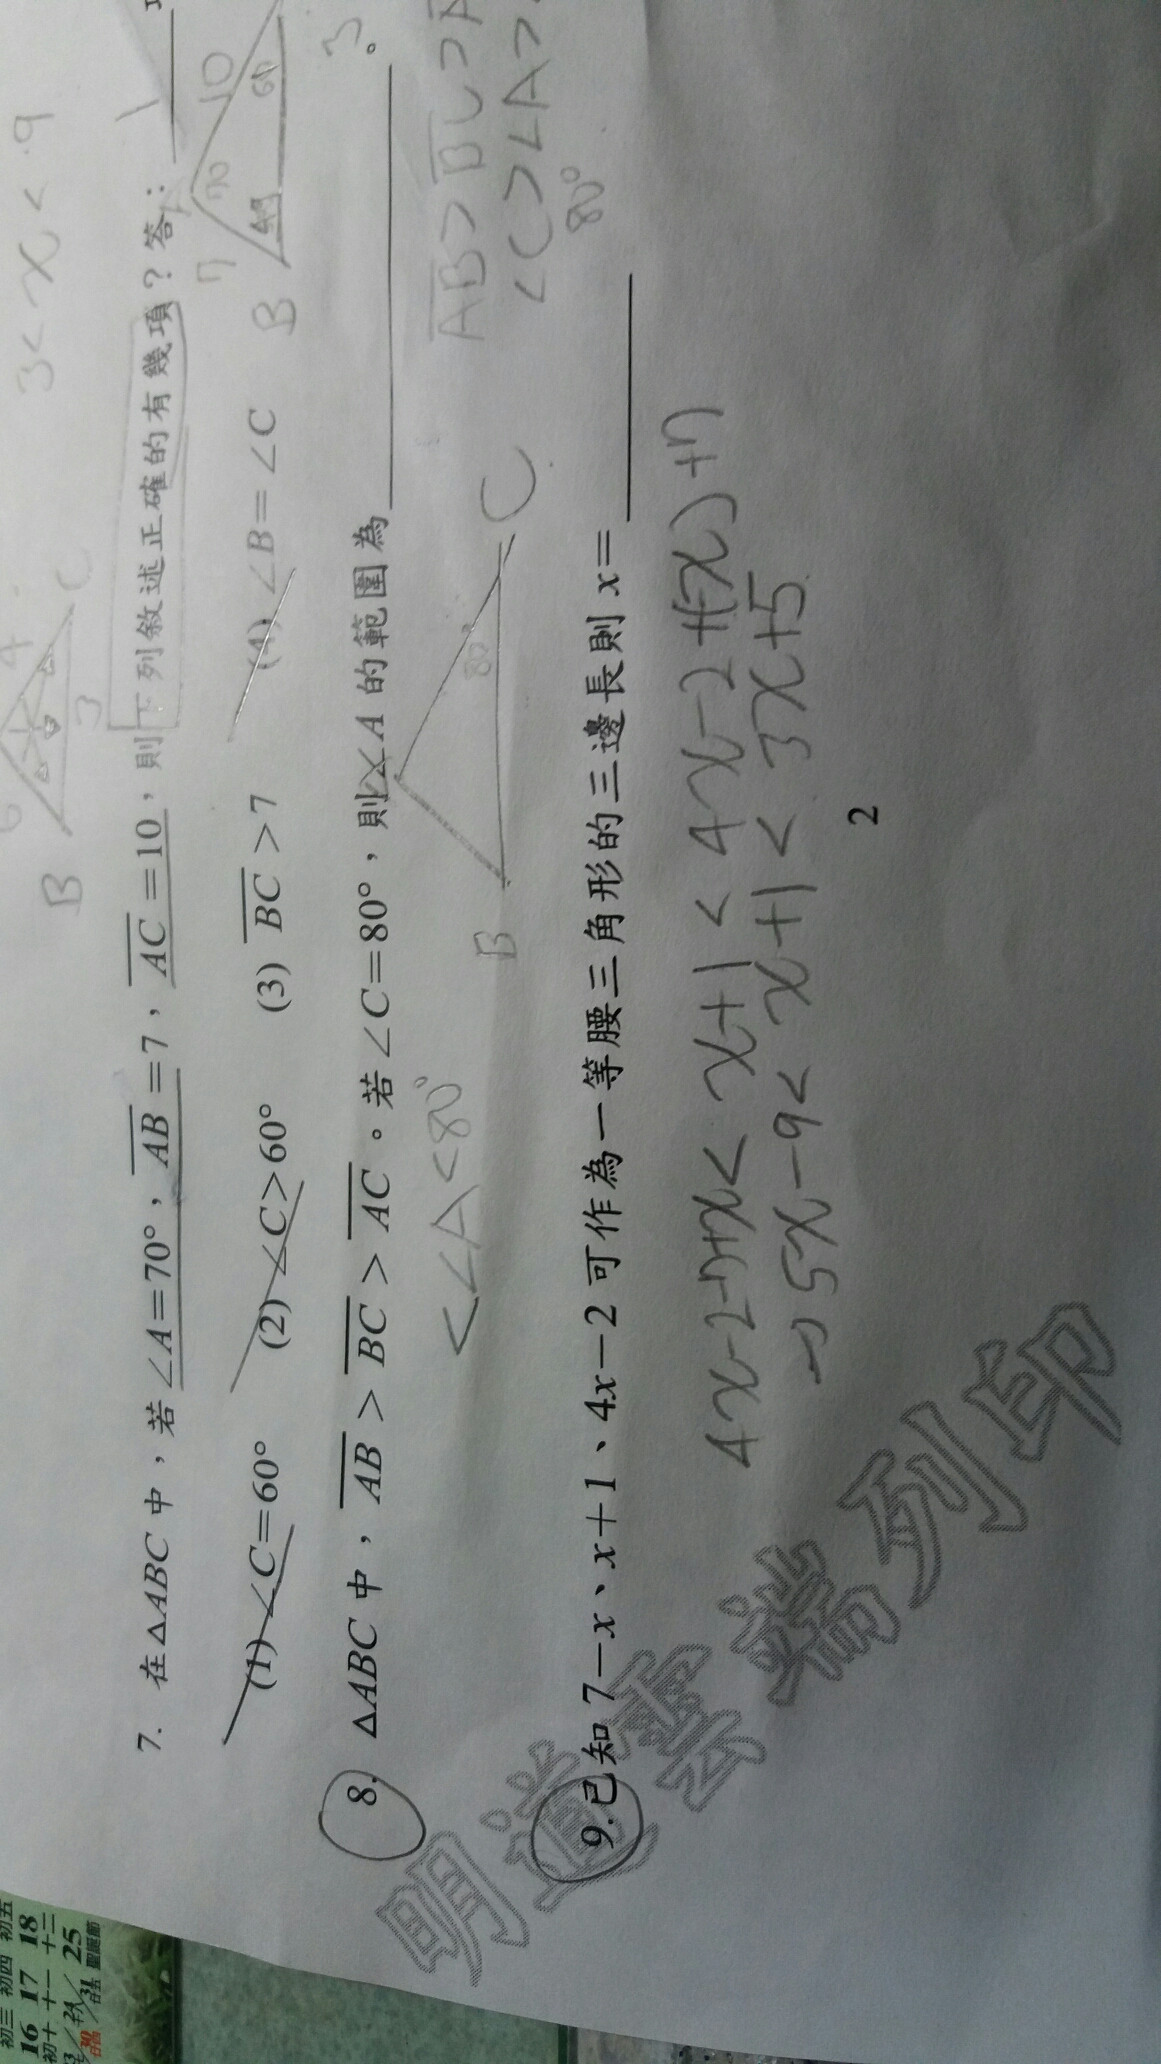 3<x<9
6 4
B 3 C
7. 在△ABC中，若∠A=70°，AB=7，AC=10，則下列敘述正確的有幾項？答：
(1) ∠C=60° (2) ∠C>60° (3) BC>7 (4) ∠B=∠C
7 70 10
B 60
8. △ABC中，AB>BC>AC。若∠C=80°，則∠A的範圍為 。
<∠A<80°
B 80° C
AB>BC>A
∠C>∠A>
80°
9. 已知7－x、x＋1、4x－2可作為一等腰三角形的三邊長則x=
4x-2-7+x<x+1<4x-2+(-x)+7
→5x-9<x+1<3x+5
2
明道雲端列印
初三 初四 初五
16 17 18
初十 十一 十二
25
30 31
聖誕節